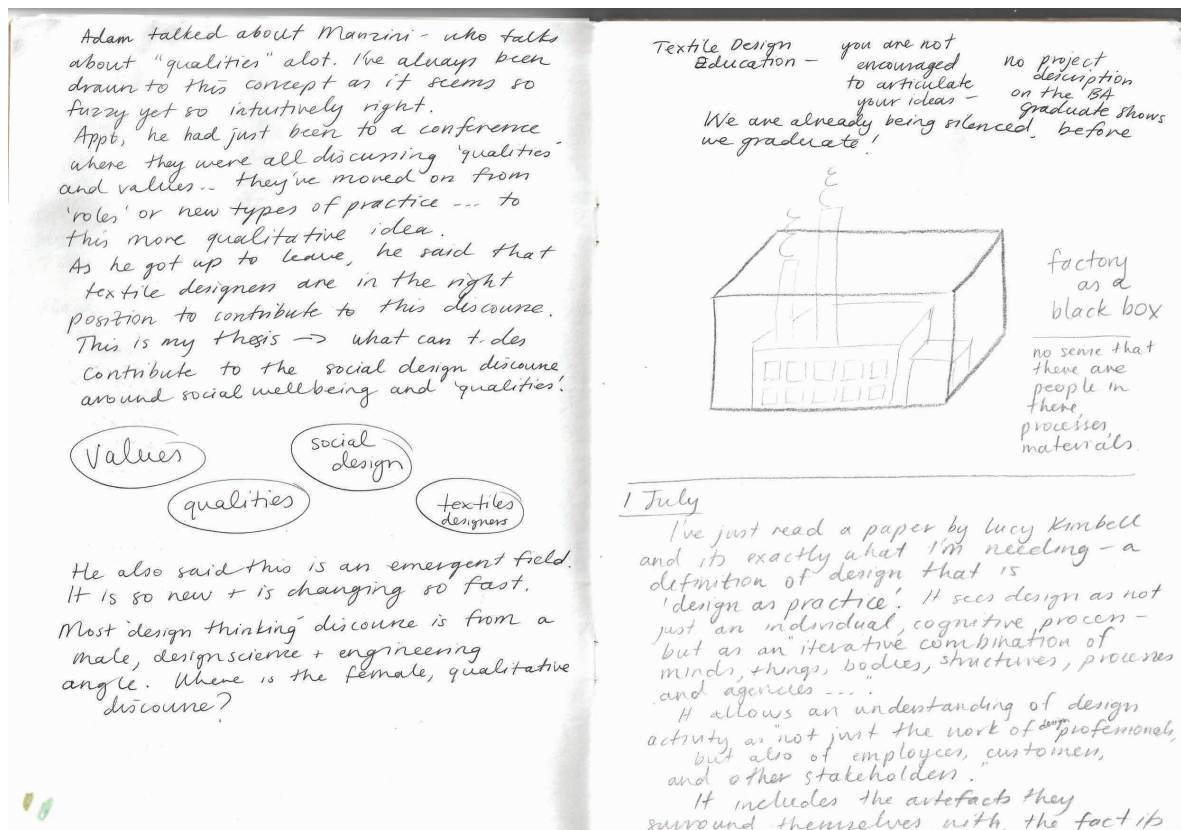 Adam talked about Manzini - who talks
about "qualities" alot. I've always been
drawn to this concept as it seems so
fuzzy yet so intuitively right.
Appt, he had just been to a conference
where they were all discussing 'qualities'
and values... they've moved on from
'roles' or new types of practice ... to
this more qualitative idea.
As he got up to leave, he said that
textile designers are in the right
position to contribute to this discourse.
This is my thesis → what can t.des
contribute to the social design discourse
around social wellbeing and 'qualities'.
values
social
design
qualities
textiles
designers
He also said this is an emergent field.
It is so new + is changing so fast.
Most 'design thinking' discourse is from a
male, design science + engineering
angle. Where is the female, qualitative
discourse?
Textile Design
Education -
you are not
encouraged
to articulate
your ideas -
no project
description
on the BA
graduate shows
We are already being silenced, before
we graduate!
factory
as a
black box
no sense that
there are
people in
there,
processes,
materials.
1 July
I've just read a paper by Lucy Kimbell
and its exactly what I'm needing - a
definition of design that is
'design as practice'. It sees design as not
just an individual, cognitive process -
but as an "iterative combination of
minds, things, bodies, structures, processes
and agencies ...."
It allows an understanding of design
activity as "not just the work of design professionals,
but also of employees, customers,
and other stakeholders."
It includes the artefacts they
surround themselves with, the fact its